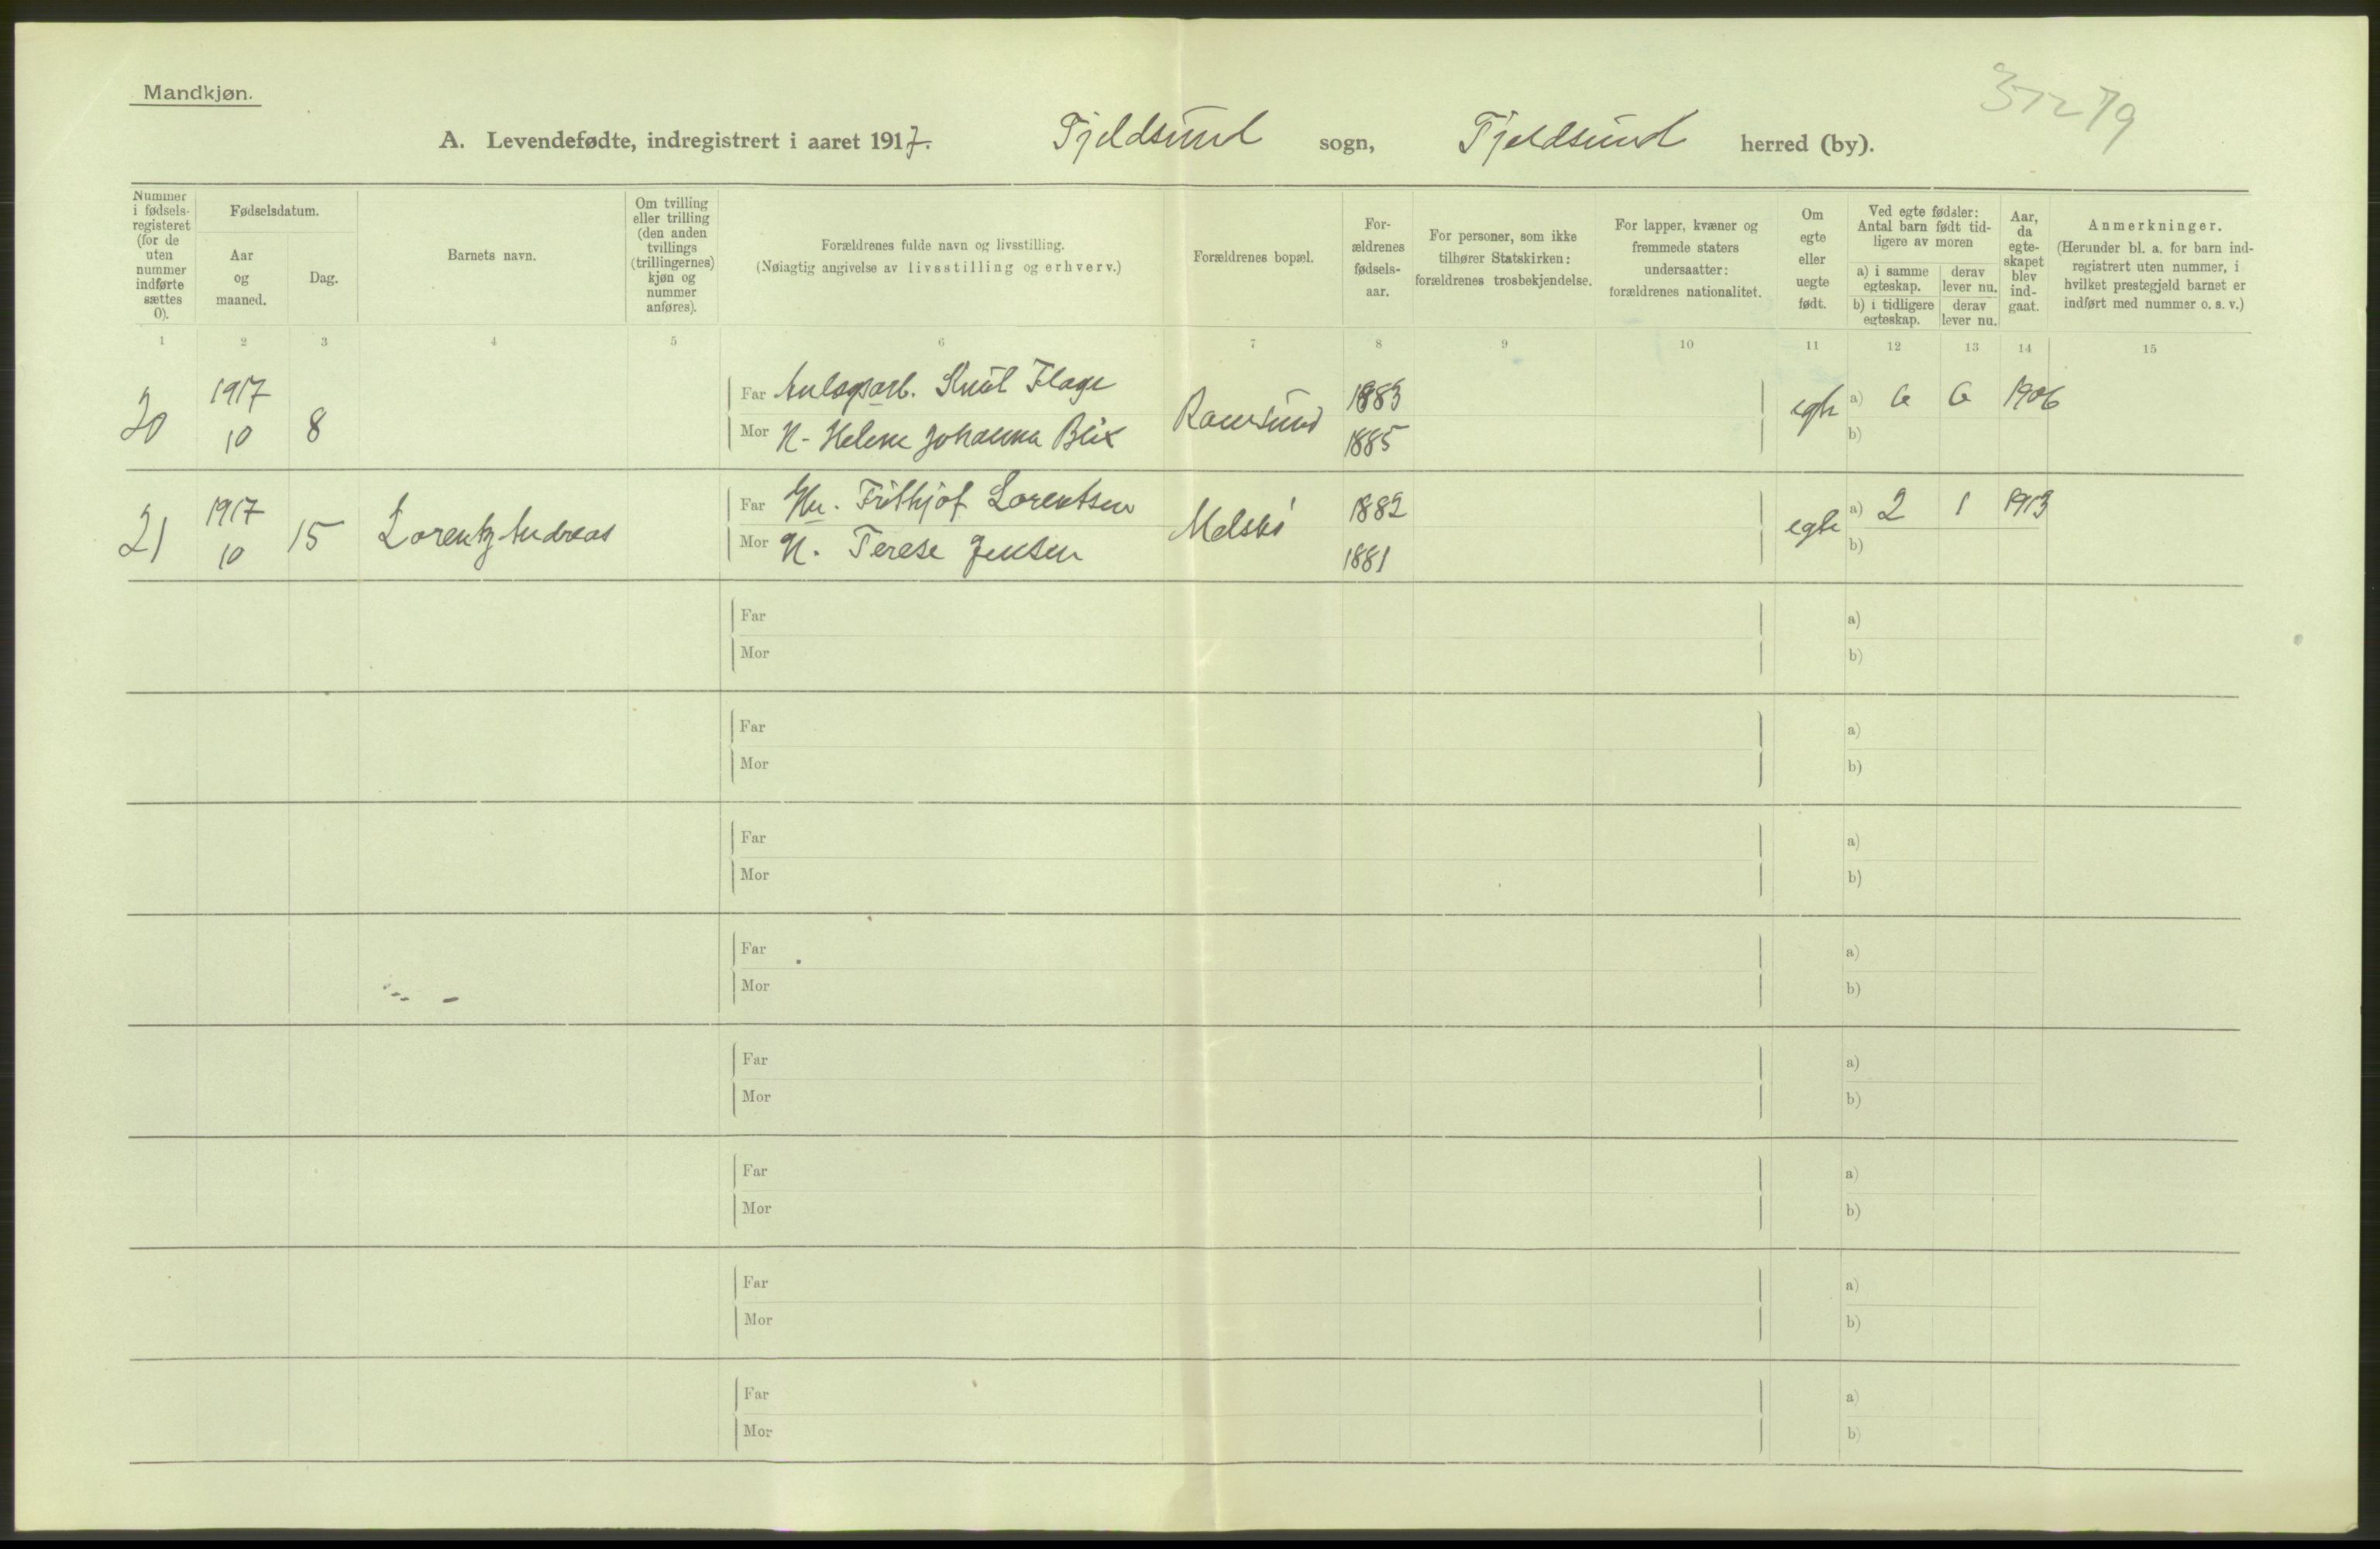 Mandkjøn.
A. Levendefødte, indregistrert i aaret 1917. Fjeldsund sogn, Fjeldsund herred (by).
Nummer i fødsels-registeret (for de uten nummer indførte sættes 0).
Fødselsdatum.
Aar og maaned.
Dag.
Barnets navn.
Om tvilling eller trilling (den anden tvillings (trillingernes) kjøn og nummer anføres).
Forældrenes fulde navn og livsstilling.
(Nøiagtig angivelse av livsstilling og erhverv.)
Forældrenes bopæl.
For-ældrenes fødsels-aar.
For personer, som ikke tilhører Statskirken: forældrenes trosbekjendelse.
For lapper, kvæner og fremmede staters undersaatter: forældrenes nationalitet.
Om egte eller uegte født.
Ved egte fødsler: Antal barn født tid-ligere av moren
a) i samme egteskap.
derav lever nu.
b) i tidligere egteskap.
derav lever nu.
Aar, da egte-skapet blev ind-gaat.
Anmerkninger.
(Herunder bl. a. for barn ind-registrert uten nummer, i hvilket prestegjeld barnet er indført med nummer o. s. v.)
1 2 3 4 5 6 7 8 9 10 11 12 13 14 15
20 1917 10 8 Far Anlægsarb. Knut Flage Ramsund 1883 egte a) 6 6 1906
Mor H. Helene Johanna Blix 1885 b)
21 1917 10 15 Lorentz Andreas Far Frithjof Lorentsen 1882 egte a) 2 1 1913
Mor H. Terese Jensen 1881 b)
Far a)
Mor b)
Far a)
Mor b)
Far a)
Mor b)
Far a)
Mor b)
Far a)
Mor b)
Far a)
Mor b)
Far a)
Mor b)
Far a)
Mor b)